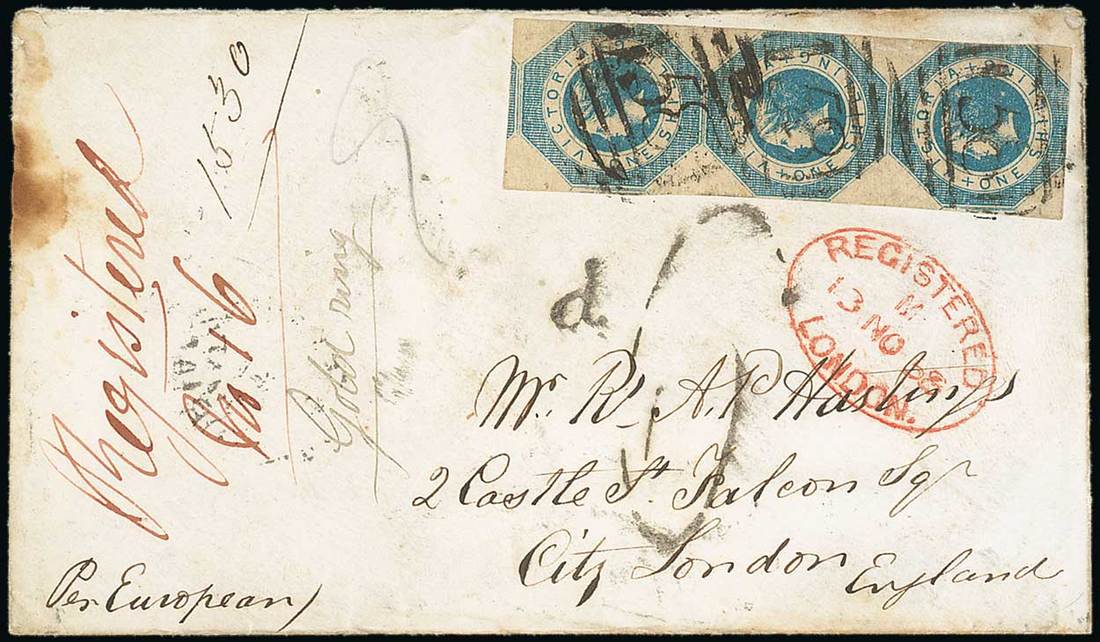 VICTORIA + ONE SHILLING
VICTORIA + ONE SHILLING
VICTORIA + ONE SHILLING
50
REGISTERED
M
13 NO
LONDON.
Registered
No 46
1530
Gold ring
d
Mr. R. A. P. Hastings
2 Castle St. Falcon Sqr
City London
England
Per European